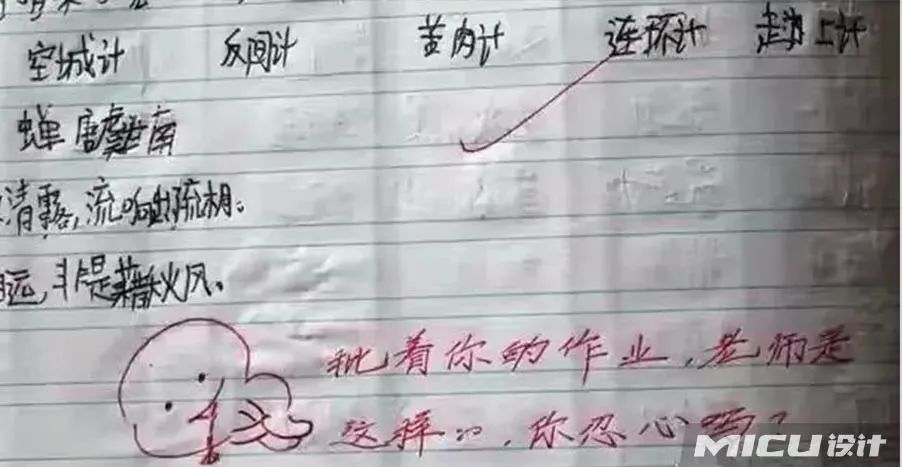 空城计 反间计 苦肉计 连环计 走为上计
蝉 唐 虞世南
清露,流响出疏桐。
远,非是藉秋风。
批着你的作业,老师是
这样的,你忍心吗?
MICU设计